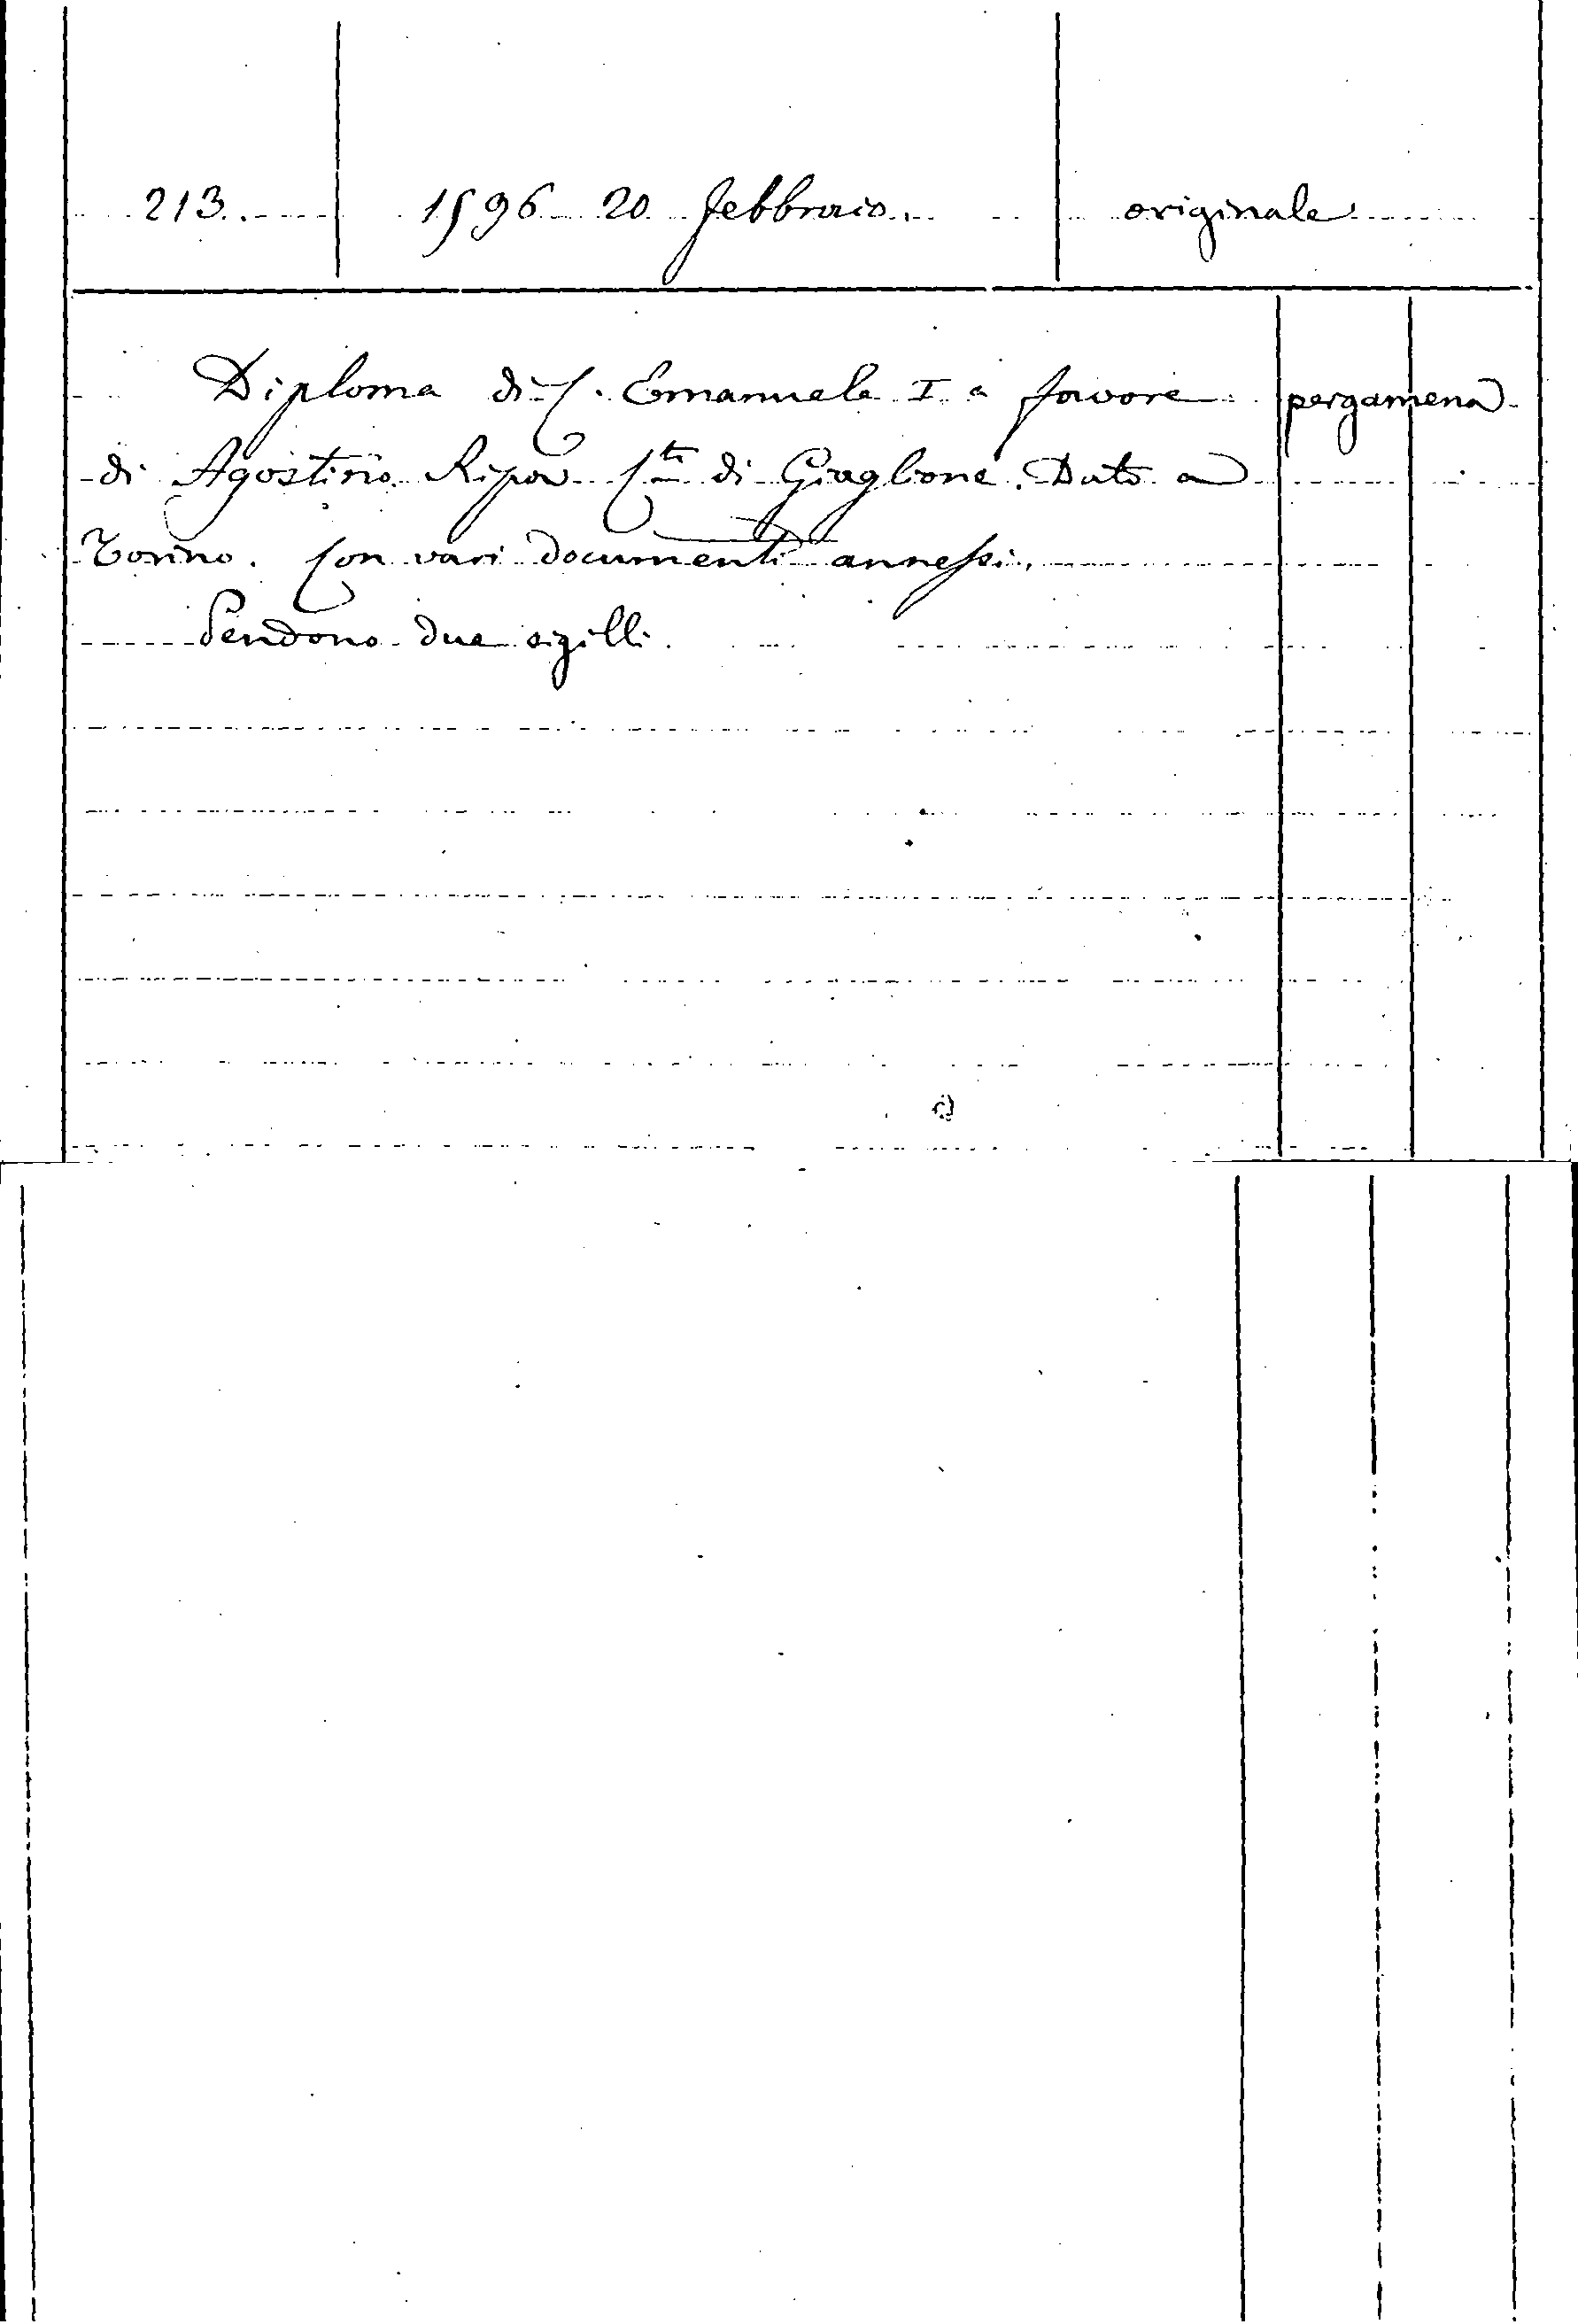 213. 1596 20 febbraio. originale
Diploma di C. Emanuele I a favore pergamena
di Agostino Ripa C.te di Giaglione. Dato a
Torino. Con vari documenti annessi.
Pendono due sigilli.